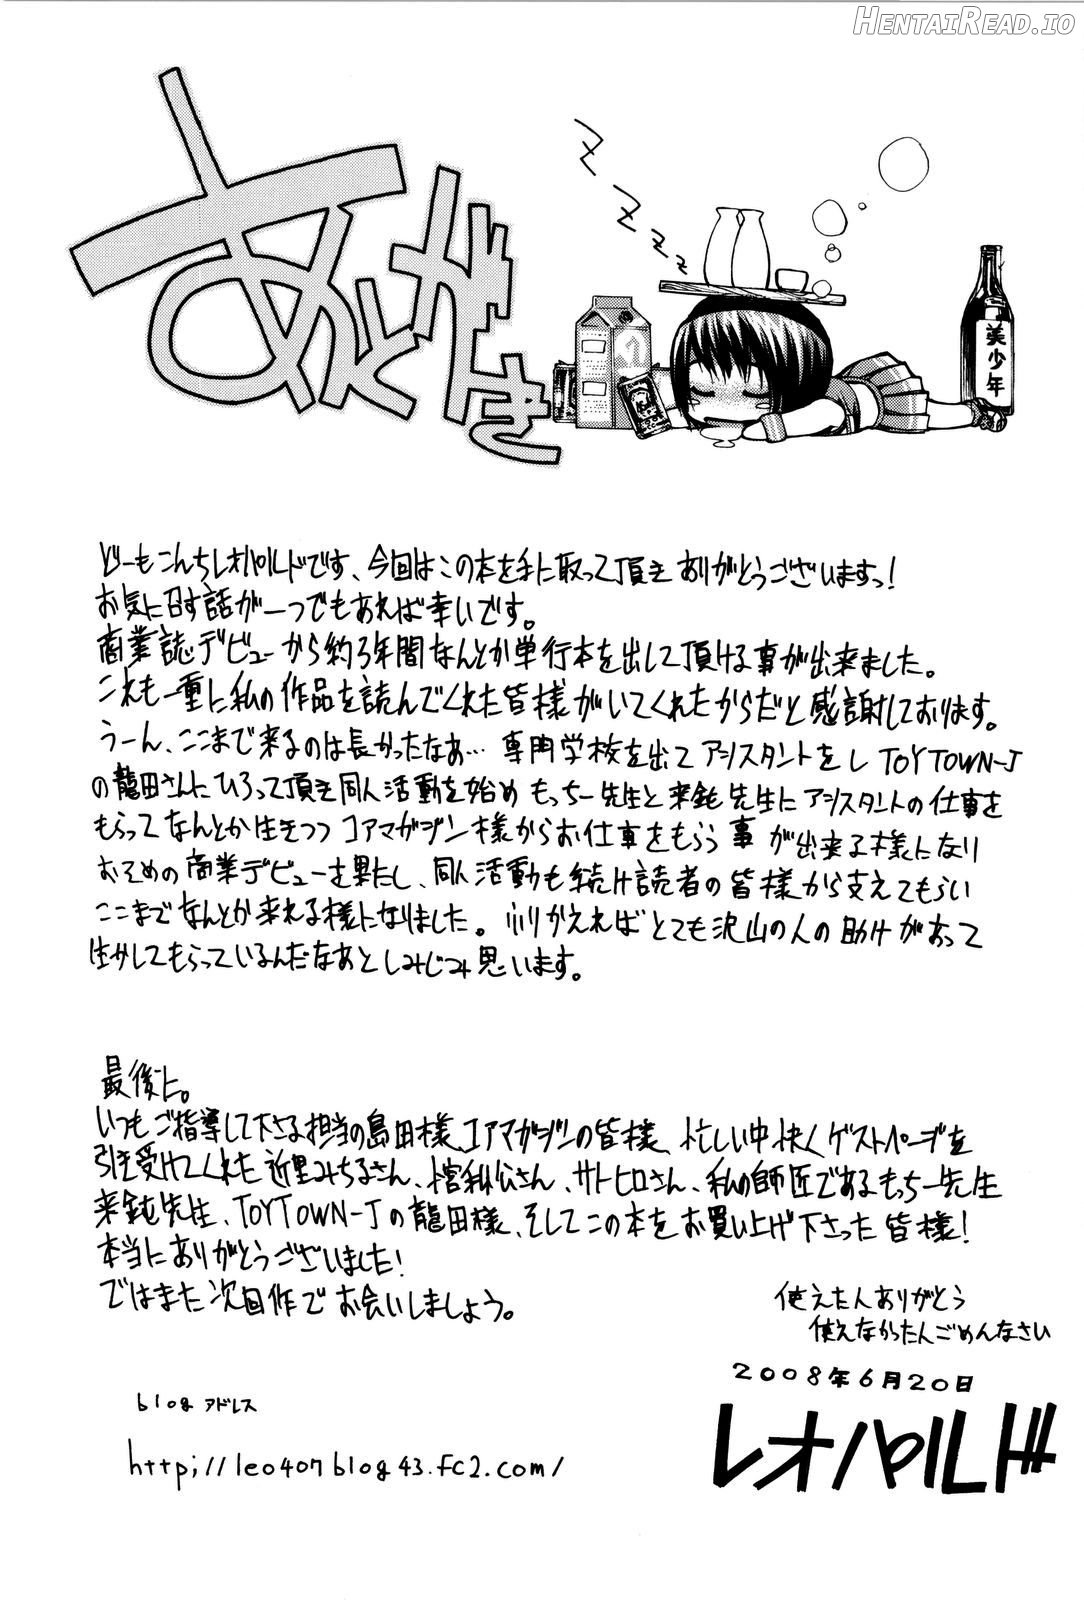 HentaiRead.io
あとがき
美少年
どーもこんちレオパルドです、今回はこの本を手に取って頂きありがとうございますっ!
お気に召す話が一つでもあれば幸いです。
商業誌デビューから約3年間なんとか単行本を出して頂ける事が出来ました。
これも一重に私の作品を読んでくれた皆様がいてくれたからだと感謝しております。
うーん、ここまで来るのは長かったなあ… 専門学校を出てアシスタントをし TOYTOWN-J
の龍田さんにひろって頂き同人活動を始め もっちー先生と来鈍先生にアシスタントの仕事を
もらってなんとか生きつつ コアマガジン様からお仕事をもらう事が出来る様になり
おそめの商業デビューを果たし、同人活動も続け読者の皆様から支えてもらい
ここまでなんとか来れる様になりました。ふりかえれば とても沢山の人の助けがあって
生かしてもらっているんだなあと しみじみ思います。
最後に。
いつもご指導して下さる担当の島田様、コアマガジンの皆様、忙しい中快くゲストページを
引き受けてくれた近里みちるさん、サトヒロさん、私の師匠であるもっちー先生
来鈍先生、TOYTOWN-Jの龍田様、そしてこの本をお買い上げ下さった皆様!
本当にありがとうございました!
ではまた次回作でお会いしましょう。
使えたんありがとう
使えなかったんごめんなさい
2008年6月20日
レオパルド
blog アドレス
http;//leo407blog43.fc2.com/